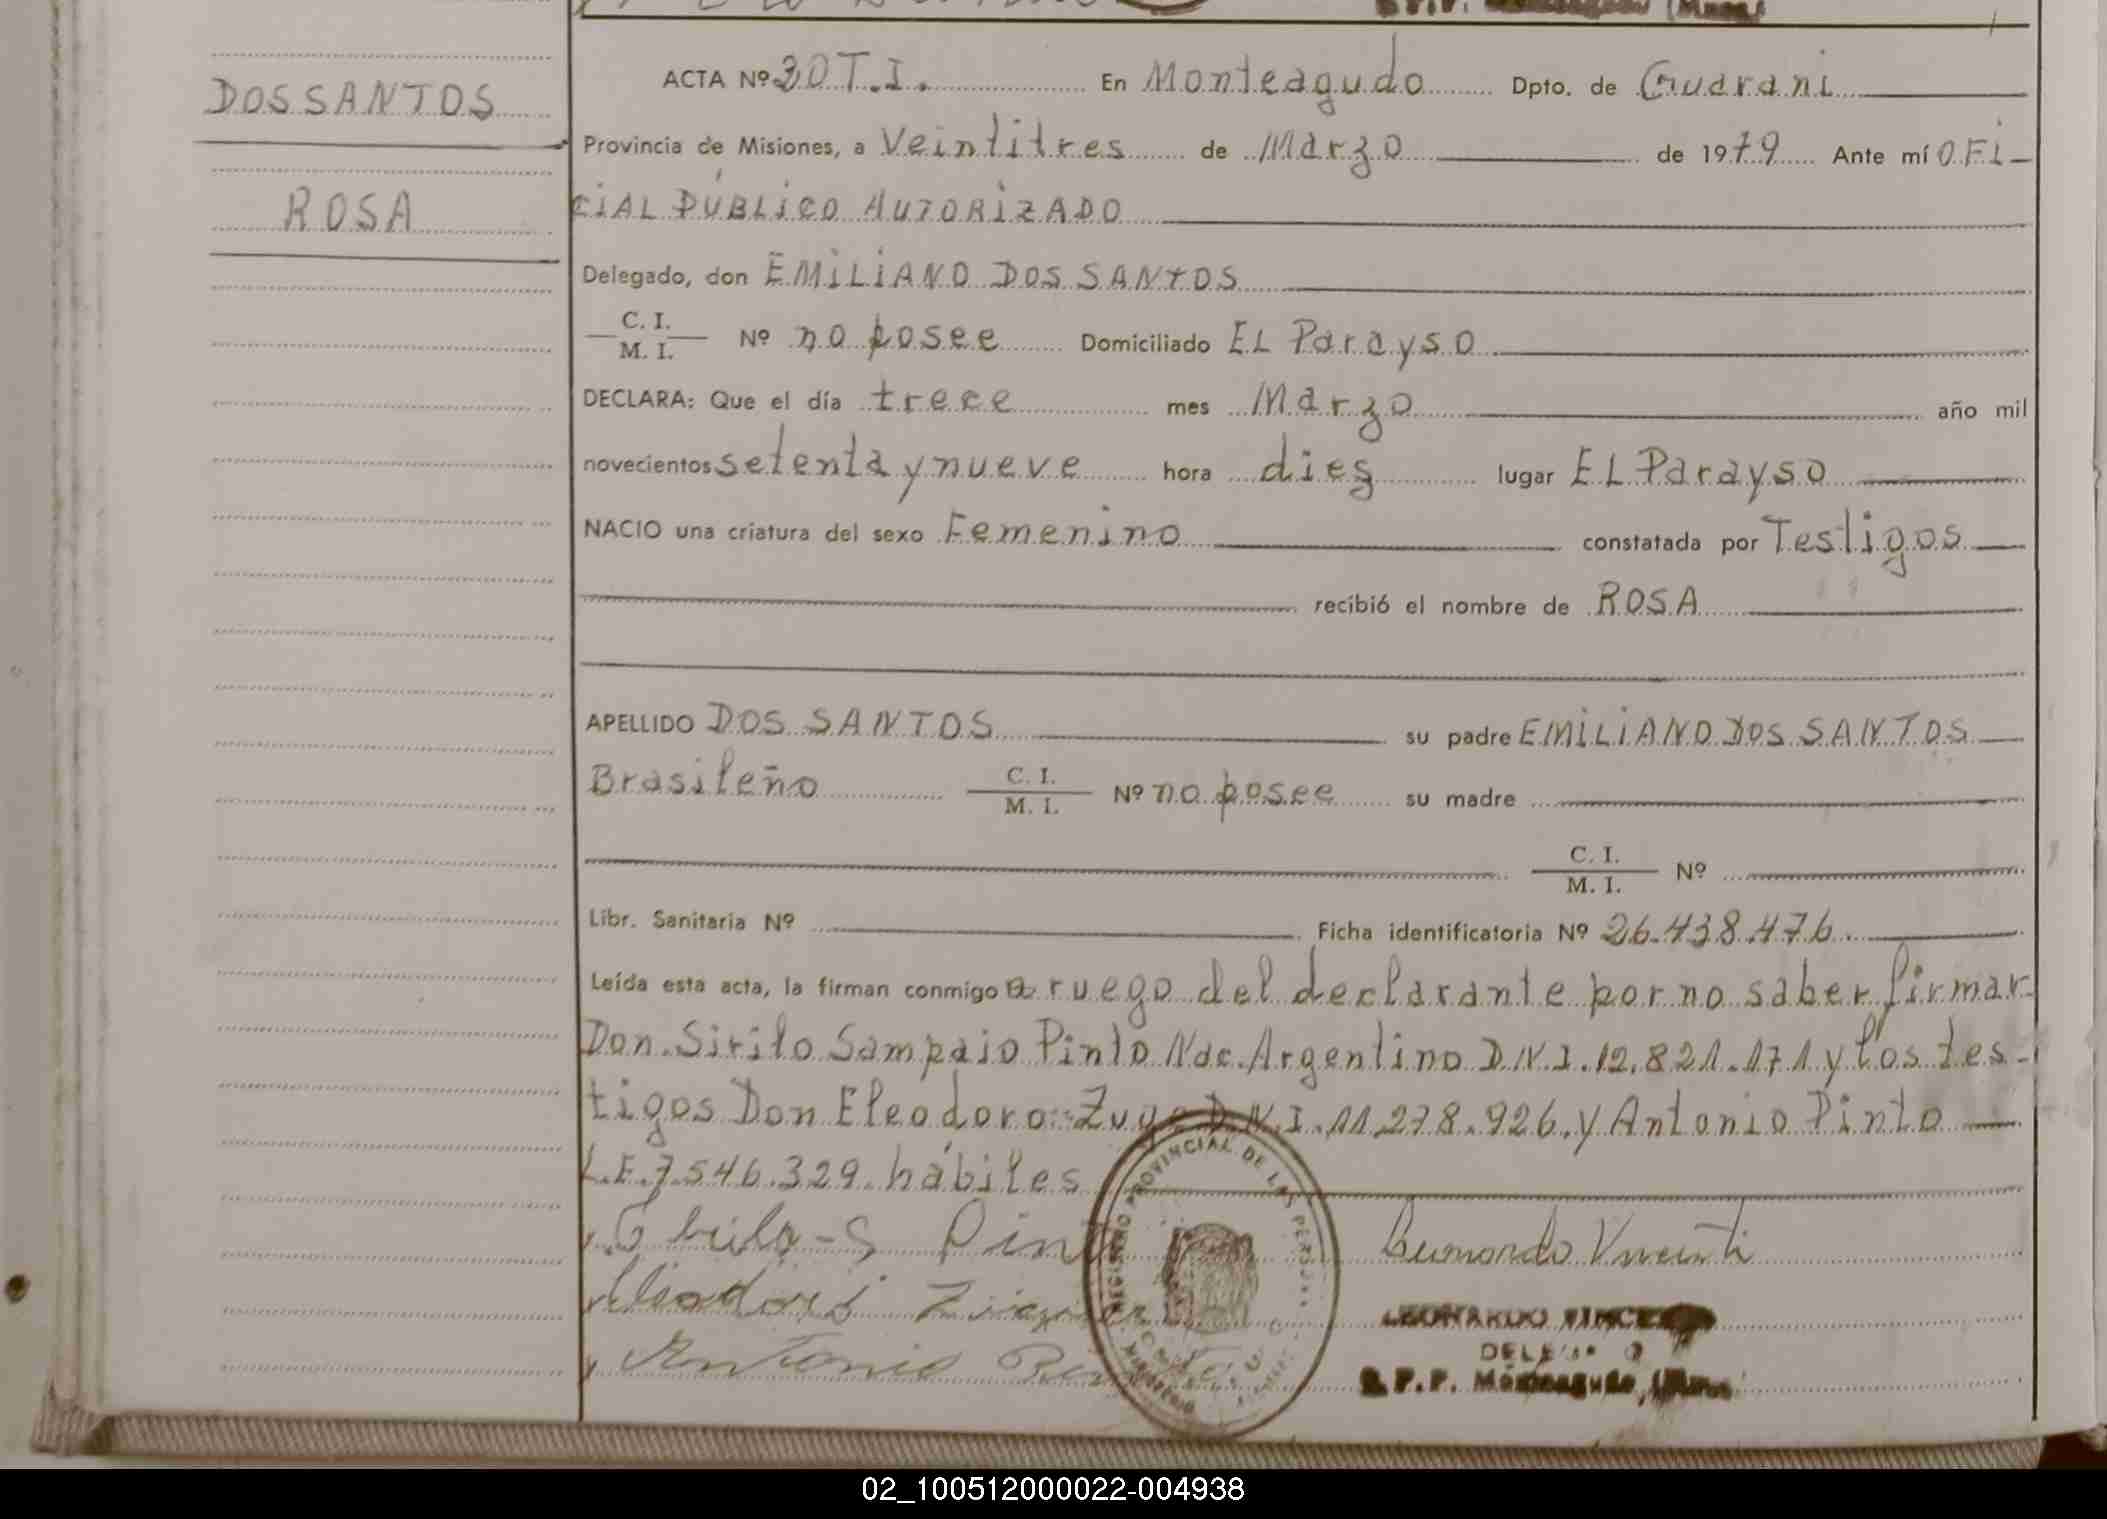 DOS SANTOS
ROSA
ACTA Nº 30 T.I. En Monteagudo Dpto. de Guarani
Provincia de Misiones, a Veintitres de Marzo de 1979 Ante mí OFI-
CIAL PÚBLICO AUTORIZADO
Delegado, don EMILIANO DOS SANTOS
C. I.
M. I. Nº no posee Domiciliado EL Parayso
DECLARA: Que el día trece mes Marzo año mil
novecientos setenta y nueve hora dies lugar EL Parayso
NACIO una criatura del sexo Femenino constatada por Testigos
recibió el nombre de ROSA
APELLIDO DOS SANTOS su padre EMILIANO DOS SANTOS
Brasileño C. I. M. I. Nº no posee su madre
C. I. M. I. Nº
Libr. Sanitaria Nº Ficha identificatoria Nº 26.438.476.
Leída esta acta, la firman conmigo a ruego del declarante por no saber firmar
Don. Sirilo Sampaio Pinto Nac. Argentino D.N.I. 12.821.171 y los tes-
tigos Don Eleodoro D.N.I. 11.278.926. y Antonio Pinto
L.E. 7.546.329. hábiles
REGISTRO PROVINCIAL DE LAS PERSONAS
Antonio
LEONARDO
R.P.P. Monteagudo (Mnes)
02_100512000022-004938